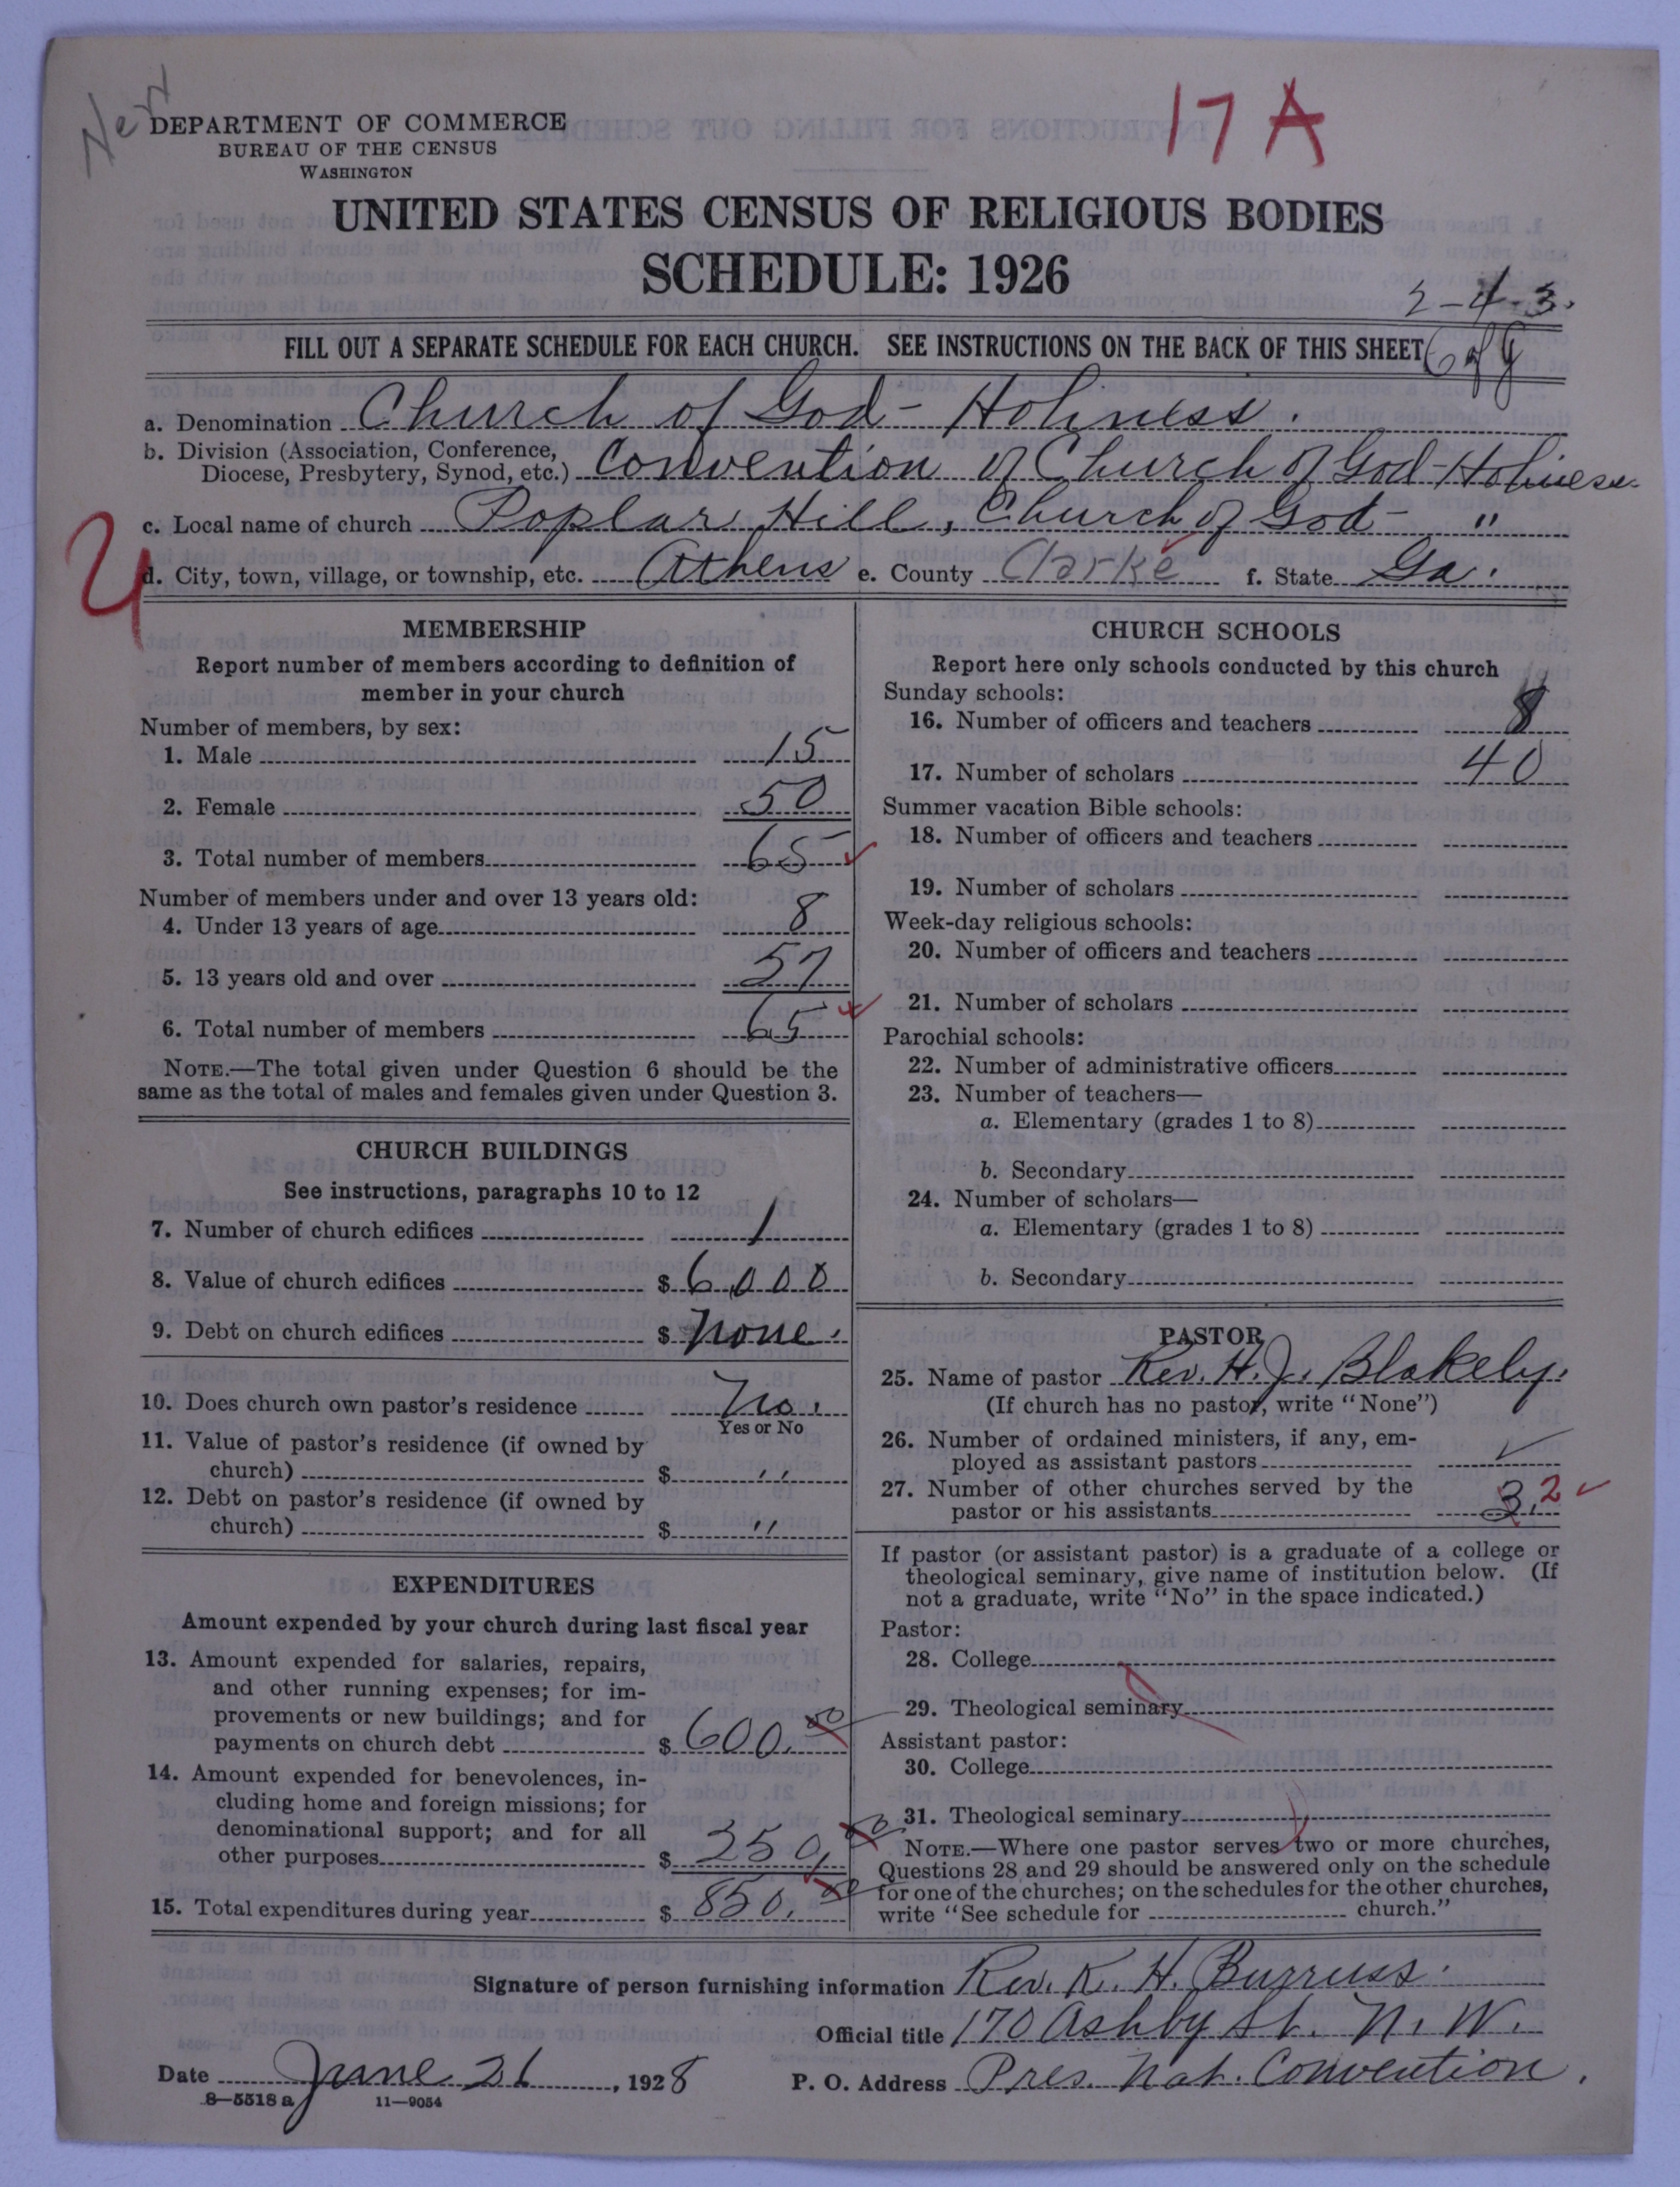 New
17 A
DEPARTMENT OF COMMERCE
BUREAU OF THE CENSUS
WASHINGTON
UNITED STATES CENSUS OF RELIGIOUS BODIES
SCHEDULE: 1926
2-4-3.
FILL OUT A SEPARATE SCHEDULE FOR EACH CHURCH. SEE INSTRUCTIONS ON THE BACK OF THIS SHEET
a. Denomination Church of God - Holiness.
b. Division (Association, Conference,
Diocese, Presbytery, Synod, etc.) Convention of Church of God-Holiness
c. Local name of church Poplar Hill, Church of God- "
d. City, town, village, or township, etc. Athens e. County Clarke f. State Ga.
MEMBERSHIP
Report number of members according to definition of
member in your church
Number of members, by sex:
1. Male 15
2. Female 50
3. Total number of members 65
Number of members under and over 13 years old:
4. Under 13 years of age 8
5. 13 years old and over 57
6. Total number of members 65
NOTE.—The total given under Question 6 should be the
same as the total of males and females given under Question 3.
CHURCH BUILDINGS
See instructions, paragraphs 10 to 12
7. Number of church edifices 1
8. Value of church edifices $ 6,000
9. Debt on church edifices $ None.
10. Does church own pastor's residence No.
Yes or No
11. Value of pastor's residence (if owned by
church) $ "
12. Debt on pastor's residence (if owned by
church) $ "
EXPENDITURES
Amount expended by your church during last fiscal year
13. Amount expended for salaries, repairs,
and other running expenses; for im-
provements or new buildings; and for
payments on church debt $ 600.00
14. Amount expended for benevolences, in-
cluding home and foreign missions; for
denominational support; and for all
other purposes $ 250.00
15. Total expenditures during year $ 850.00
CHURCH SCHOOLS
Report here only schools conducted by this church
Sunday schools:
16. Number of officers and teachers 8
17. Number of scholars 40
Summer vacation Bible schools:
18. Number of officers and teachers
19. Number of scholars
Week-day religious schools:
20. Number of officers and teachers
21. Number of scholars
Parochial schools:
22. Number of administrative officers
23. Number of teachers—
a. Elementary (grades 1 to 8)
b. Secondary
24. Number of scholars—
a. Elementary (grades 1 to 8)
b. Secondary
PASTOR
25. Name of pastor Rev. H. J. Blakely.
(If church has no pastor, write "None")
26. Number of ordained ministers, if any, em-
ployed as assistant pastors
27. Number of other churches served by the
pastor or his assistants 3. 2
If pastor (or assistant pastor) is a graduate of a college or
theological seminary, give name of institution below. (If
not a graduate, write "No" in the space indicated.)
Pastor:
28. College
29. Theological seminary
Assistant pastor:
30. College
31. Theological seminary
NOTE.—Where one pastor serves two or more churches,
Questions 28 and 29 should be answered only on the schedule
for one of the churches; on the schedules for the other churches,
write "See schedule for church."
Signature of person furnishing information Rev. K. H. Burruss.
Official title 170 Ashby St. N. W.
Date June 26, 1928 P. O. Address Pres. Nat. Convention.
8—5518 a 11—9054